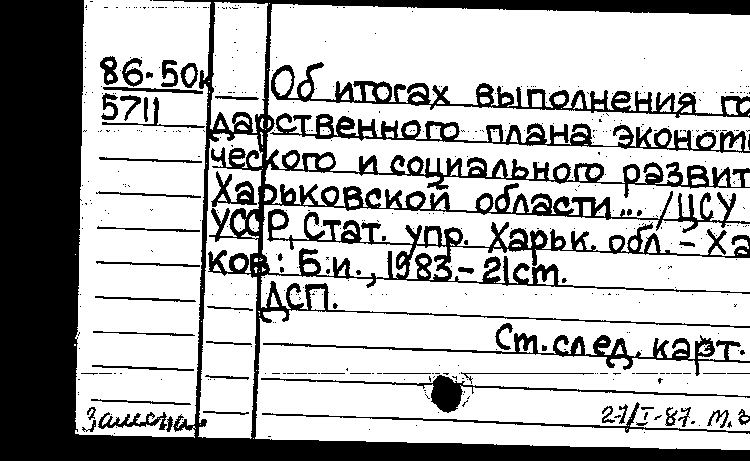 86-50к Об итогах выполнения го
5711 дарственного плана эконом
ческого и социального развит
Харьковской области... /ЦСУ
УССР, Стат. упр. Харьк. обл. – Ха
ков: Б.и., 1983.– 21 ст.
ДСП.
Ст. след. карт.
27/I-87. М.З